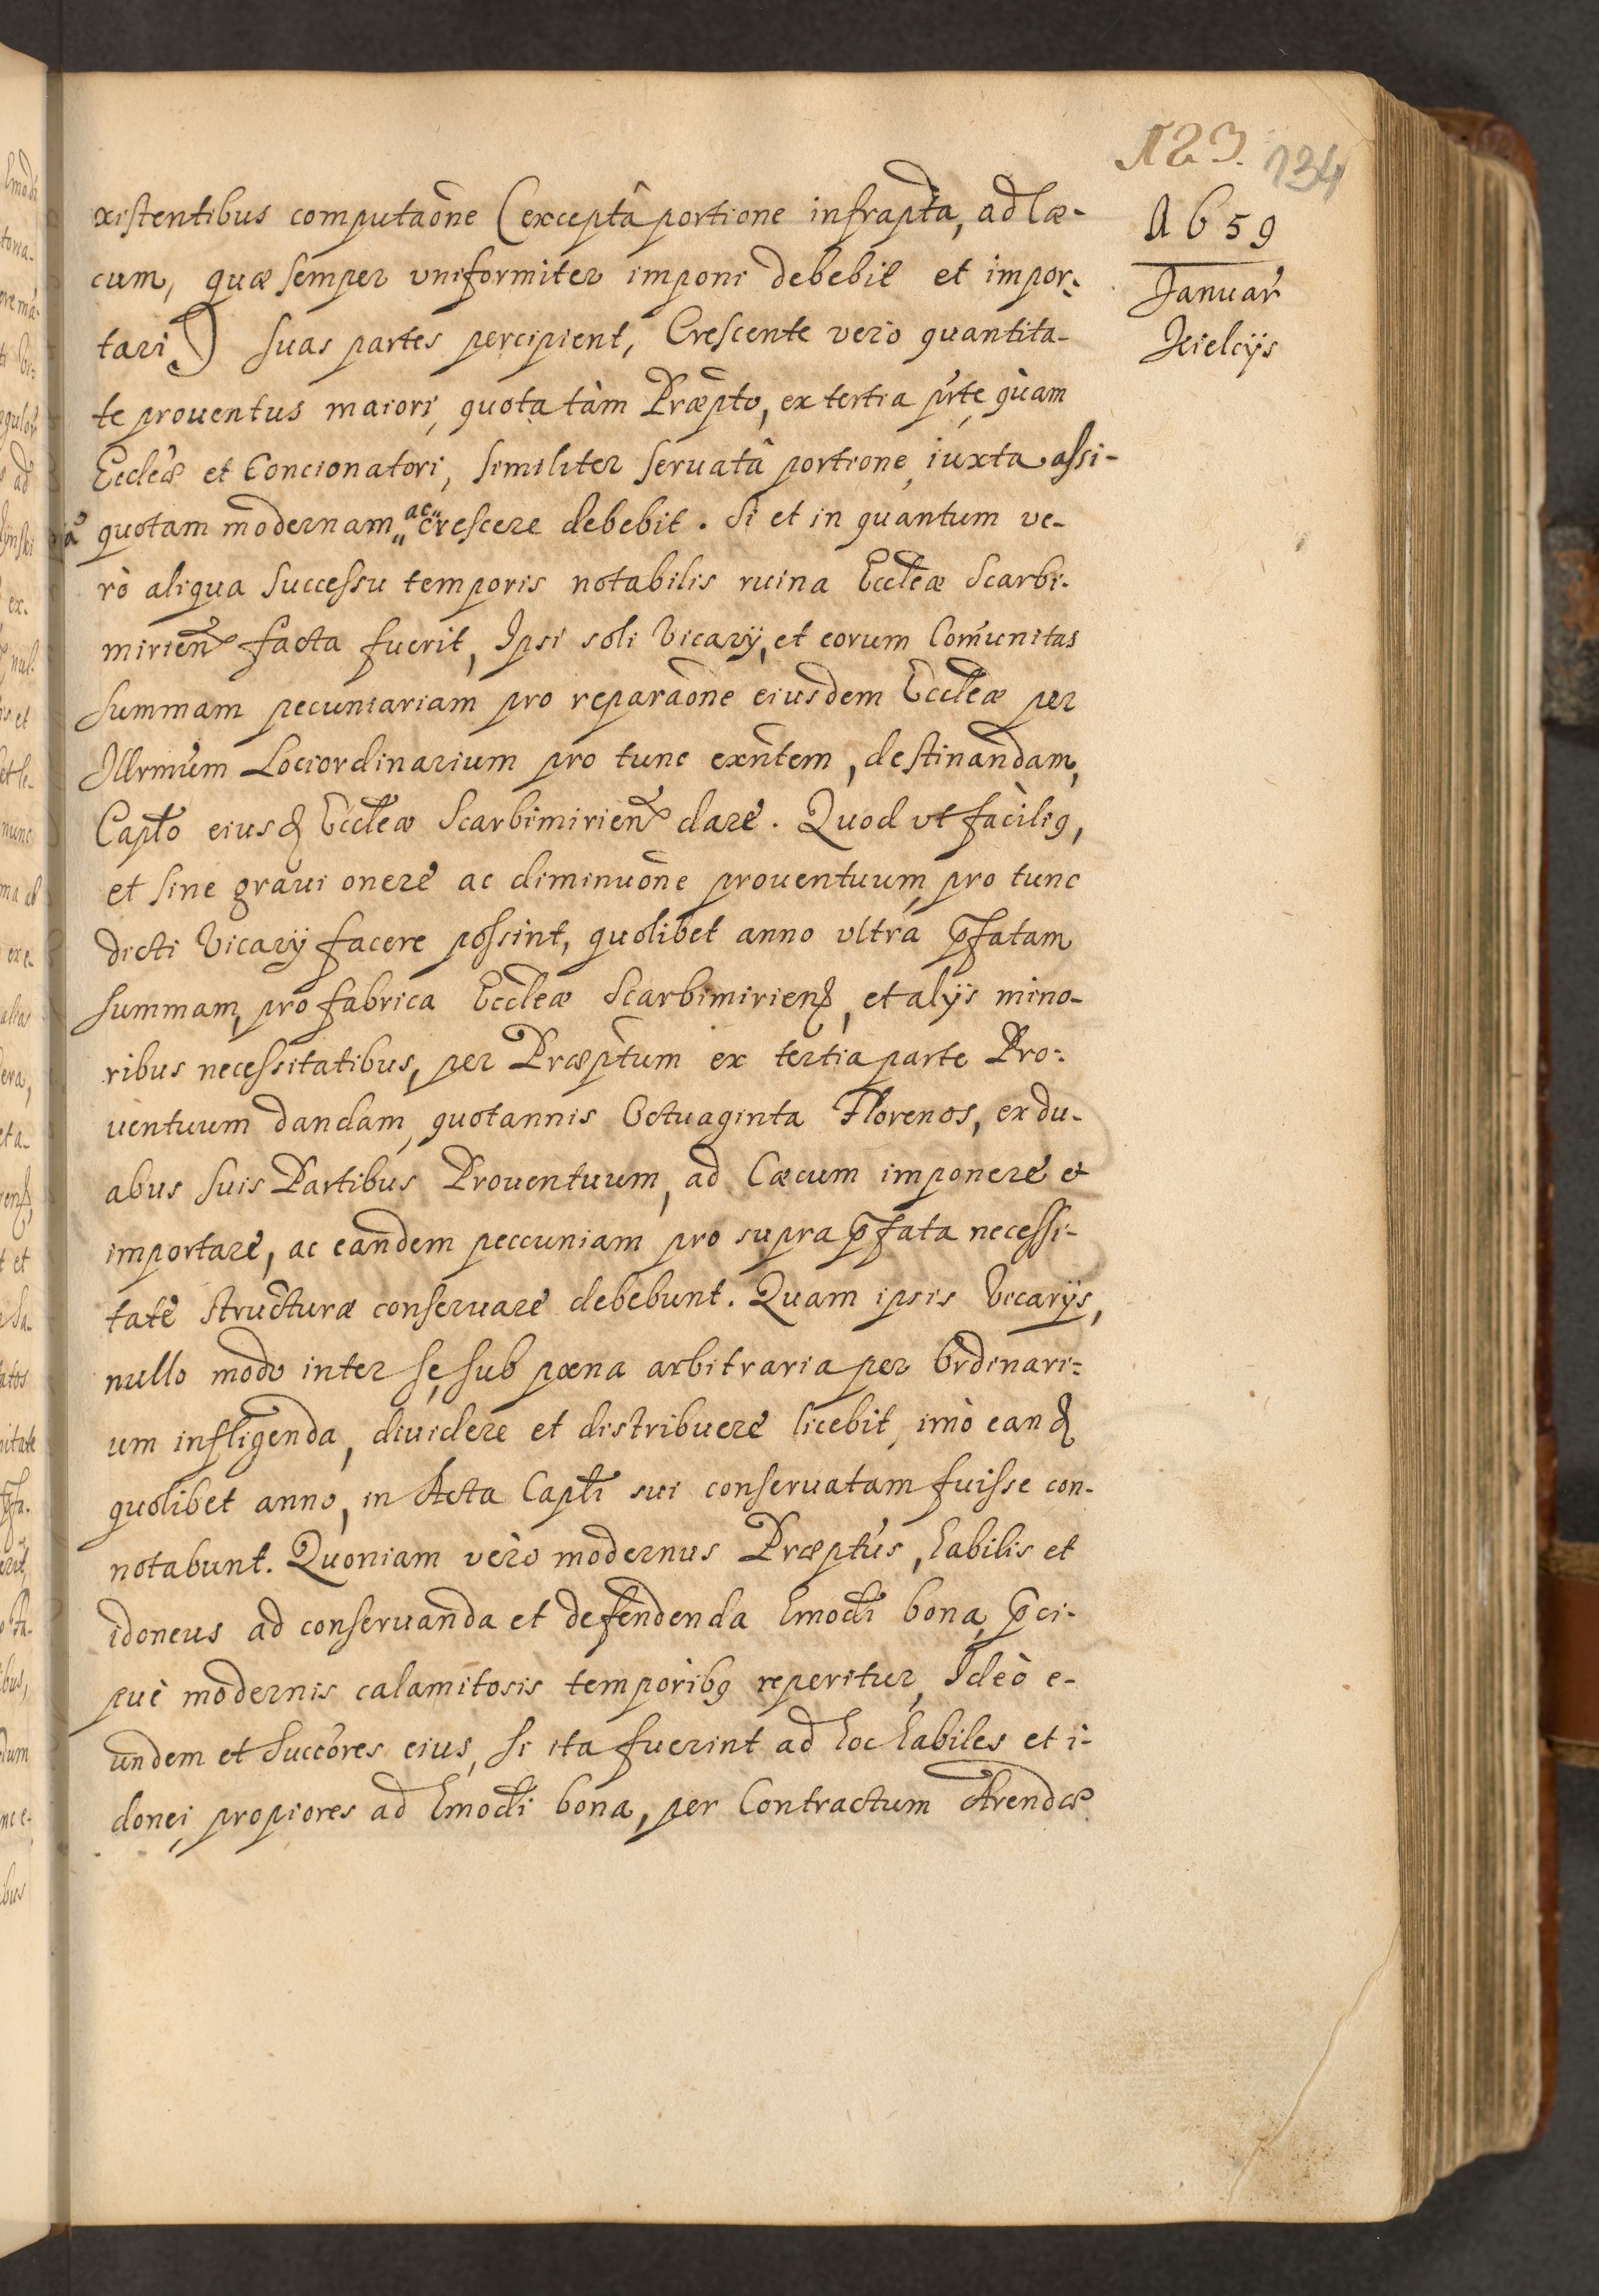 123. 134
A 659
Januar̃
Kielcÿs
xistentibus computaõne (exceptâ portione infrapt̃a, ad Cæ-
cum, quæ semper vniformiter imponi debebit et impor-
tari) suas partes percipient, Crescente vero quantita-
te prouentus maiori, quota tàm Præpt̃o, ex tertia p̃rte quàm
Eccleæ̃ et Concionatori, similiter seruatâ portione, iuxta assi-
quotam modernam „ac„ crescere debebit. Si et in quantum ve-
rò aliqua successu temporis notabilis ruina Eccl̃eæ Scarbi-
mirien̄ facta fuerit, Ipsi soli Vicarÿ, et eorum Com̃unitas
summam pecuniariam pro reparaõne eiusdem Eccl̃eæ per
Illrmũm Lociordinarium pro tunc exñtem, destinandam,
Capl̃o eiusđ Eccl̃eæ Scarbimirien̄ dare. Quod vt facili9,
et sine graui onere ac diminuõne prouentuum, pro tunc
dicti Vicarÿ facere possint, quolibet anno vltra p̃fatam
summam, pro fabrica Eccl̃eæ Scarbimirienꝭ, et alÿs mino-
ribus necessitatibus, per Præpt̃um ex tertia parte Pro-
uentuum dandam, quotannis Octuaginta Florenos, ex du-
abus suis Partibus Prouentuum, ad Cæcum imponere et
importare, ac eandem peccuniam pro supra p̃fata necessi-
tate structuræ conseruare debebunt. Quam ipsis Vicarÿs,
nullo modo inter se, sub pœna arbitraria per Ordinari-
um infligenda, diuidere et distribuere licebit, imò eanđ
quolibet anno, in Acta Capl̃i sui conseruatam fuisse con-
notabunt. Quoniam vèro modernus Præpt̃us, habilis et
idoneus ad conseruanda et defendenda hmodi bona, p̃ci-
puè modernis calamitosis temporib9 reperitur, Ideò e-
undem et Succõres eius, si ita fuerint ad hoc habiles et i-
donei, propiores ad hmodi bona, per Contractum Arendæ